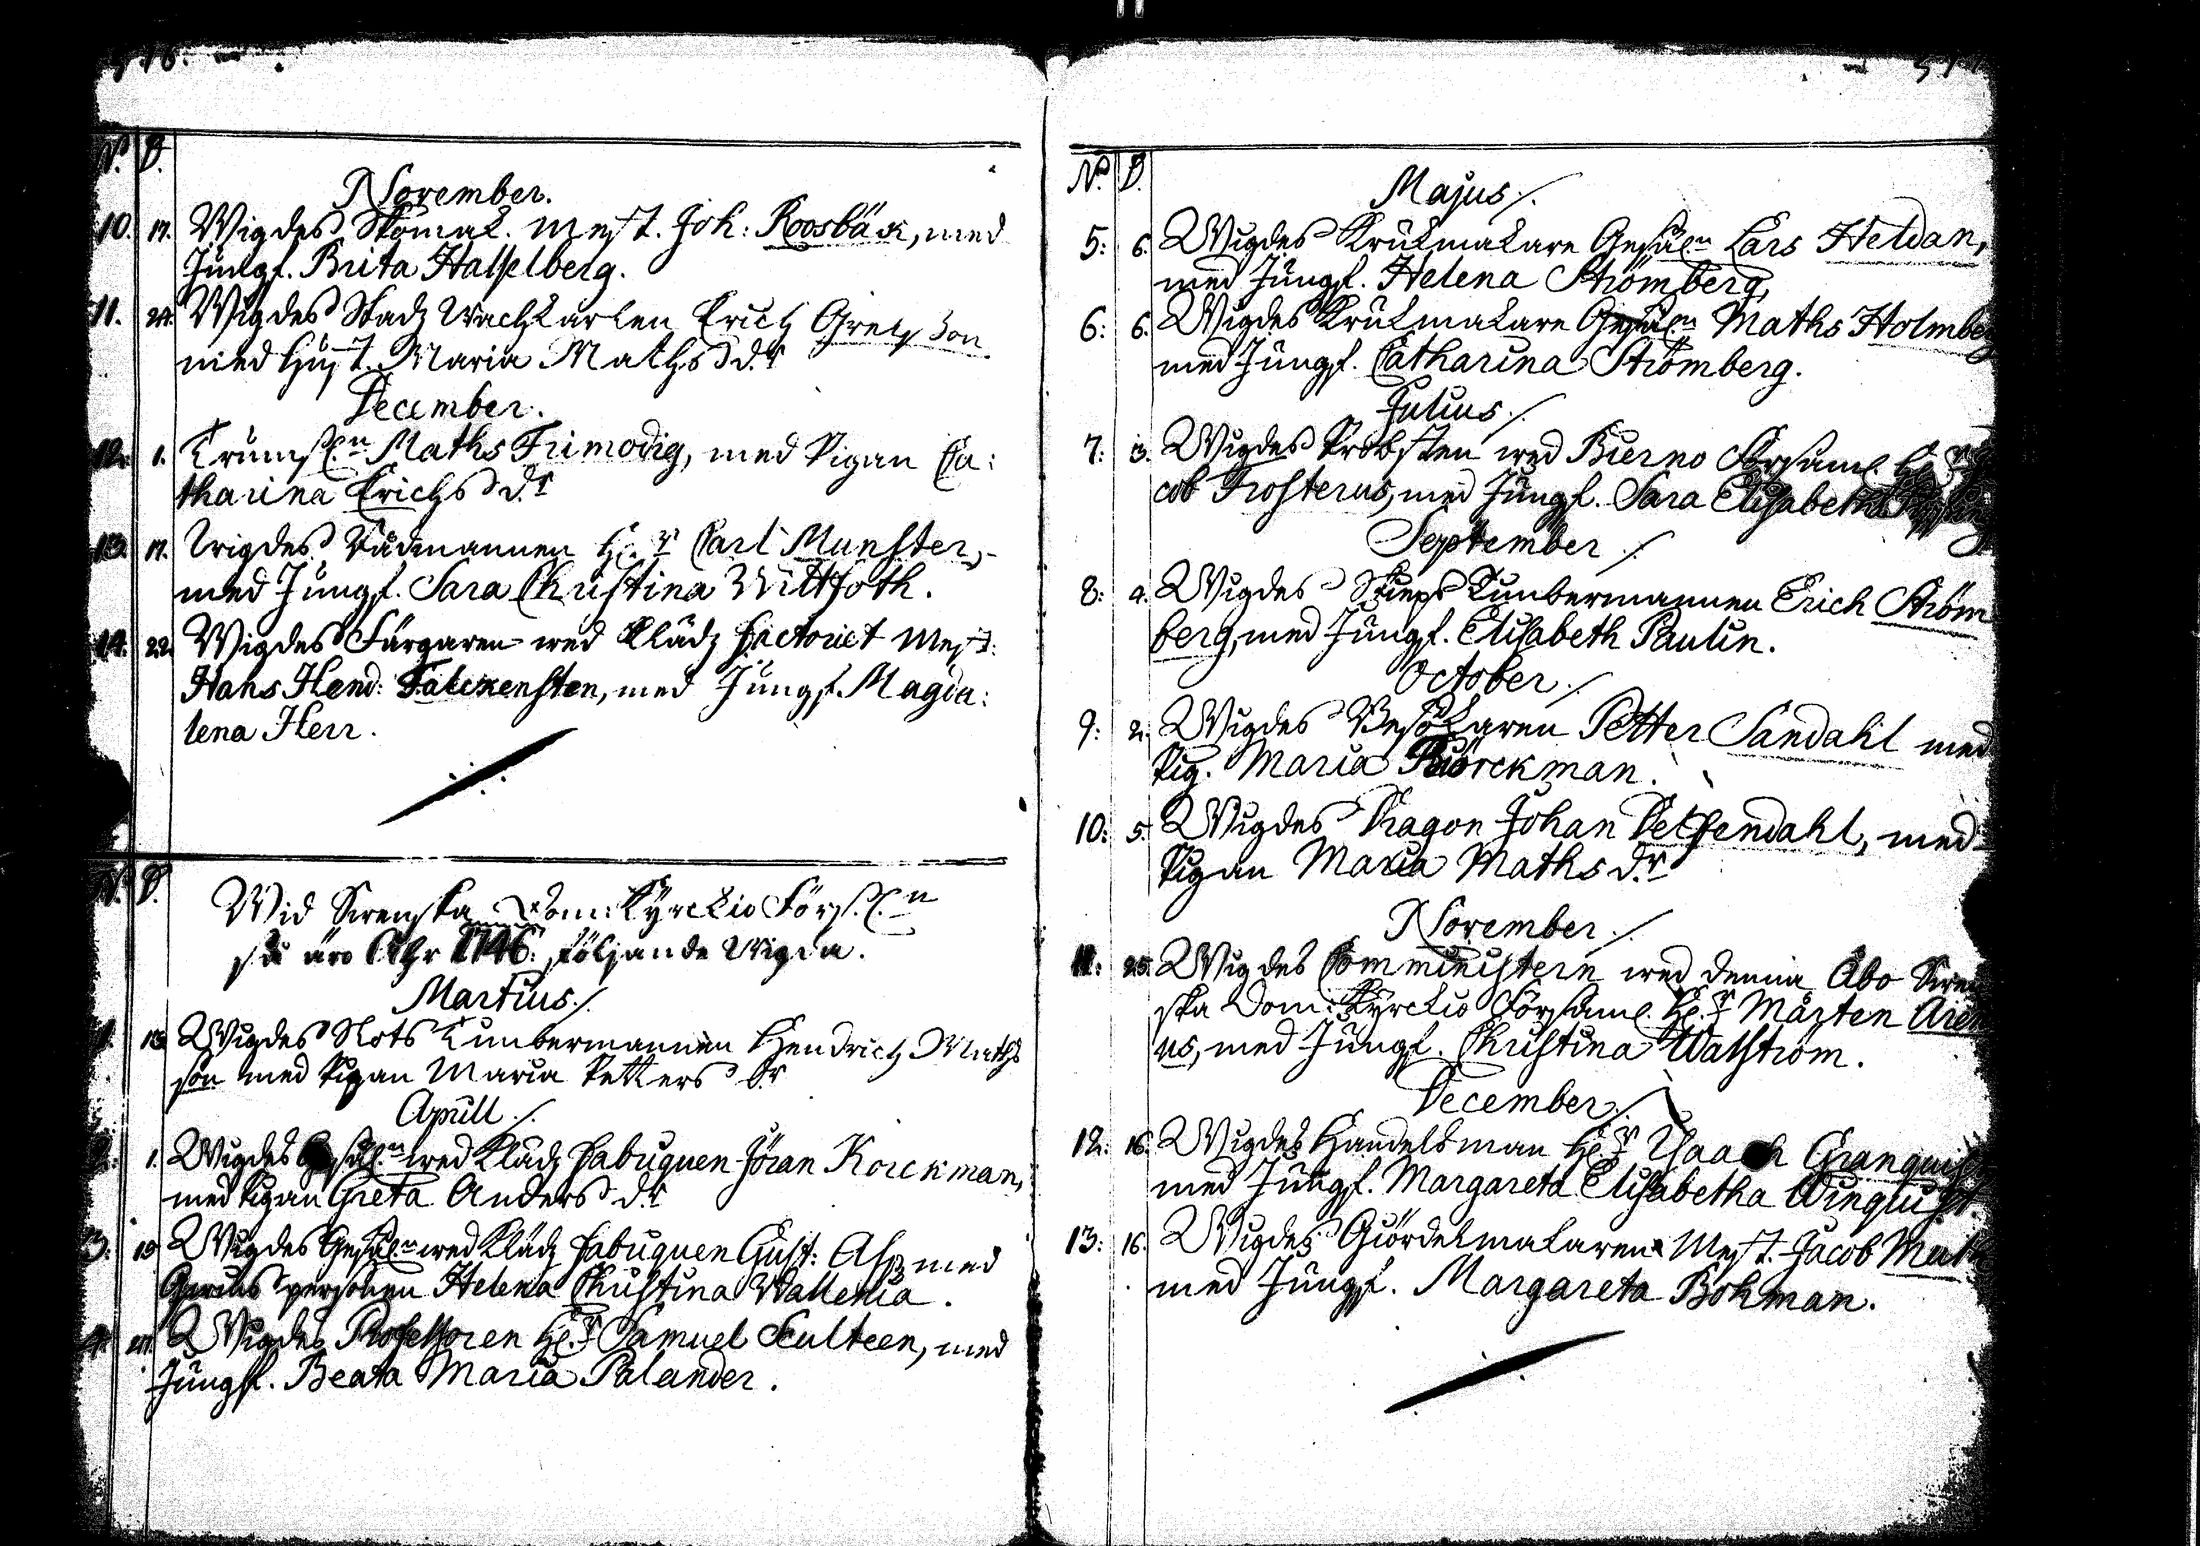 No. D.
November.
10. 17. Wigdes Skomak. Mest. Joh: Roosbäck, med
Jungf. Brita Hasselberg.
11. 24. Wigdes Stadz Wachtkarlen Erich Grelsson
med Hust. Maria Mathsd.r
December.
12. 1. Trumsl.n Maths Frimodig, med Pigan Ca:
tharina Erichsd.r
13. 17. Wigdes Rådmannen H.r Carl Munster,
med Jungf. Sara Christina Wittfoth.
14. 22. Wigdes Färgaren wed Klädz Factoriet Mest:
Hans Hend: Falckensten, med Jungf. Magda:
lena Herr.
No. D.
Wid Swenska Dom: Kyrckio Förs.l.n
så äro Åhr 1746. följande Wigda.
Martius./.
1. 13. Wigdes Slots Timbermannen Hendrich Maths
son med Pigan Maria Petters dr
Aprill./.
2. 1. Wigdes Gesäl.n wed Klädz Fabriquen Jöran Korckman,
med Pigan Greta Anders d.r
3. 19. Wigdes Gesäl.n wed Klädz Fabriquen Gust: Alfz med
personen Helena Christina Wallenia.
4. Wigdes Professoren H.r Samuel Sculteen, med
Jungf. Beata Maria Palander.
No. D.
Majus./.
5: 6. Wigdes Krukmakare Gesäl.n Lars Heldan,
med Jungf. Helena Strömberg,
6: 6. Wigdes Krukmakare Gesäl.n Maths Holmberg
med Jungf. Catharina Strömberg.
Julius./.
7: 3. Wigdes Probsten wed Bierno Församl. H.r Ja
cob Frosterus, med Jungf. Sara Elisabeth
September./.
8: 4. Wigdes Skieps Timbermannen Erich Ström
berg, med Jungf. Elisabeth Paulin.
October./.
9: 2. Wigdes Besökaren Petter Sandahl med
Pig. Maria Biörckman.
10: 5. Wigdes Dragon Johan Detsendahl, med
Pigan Maria Maths d.r
November./.
11: 25. Wigdes Comministern wed denna Åbo Swen
ska Dom: Kyrckio Församl. H.r Mårten Aren
us, med Jungf. Christina Walstrom.
December./.
12: 16. Wigdes Handelsman H.r Isaach Granquist
med Jungf. Margareta Elisabetha Winquist.
13: 16. Wigdes Giördelmakaren Mest. Jacob
med Jungf. Margareta Bohman.